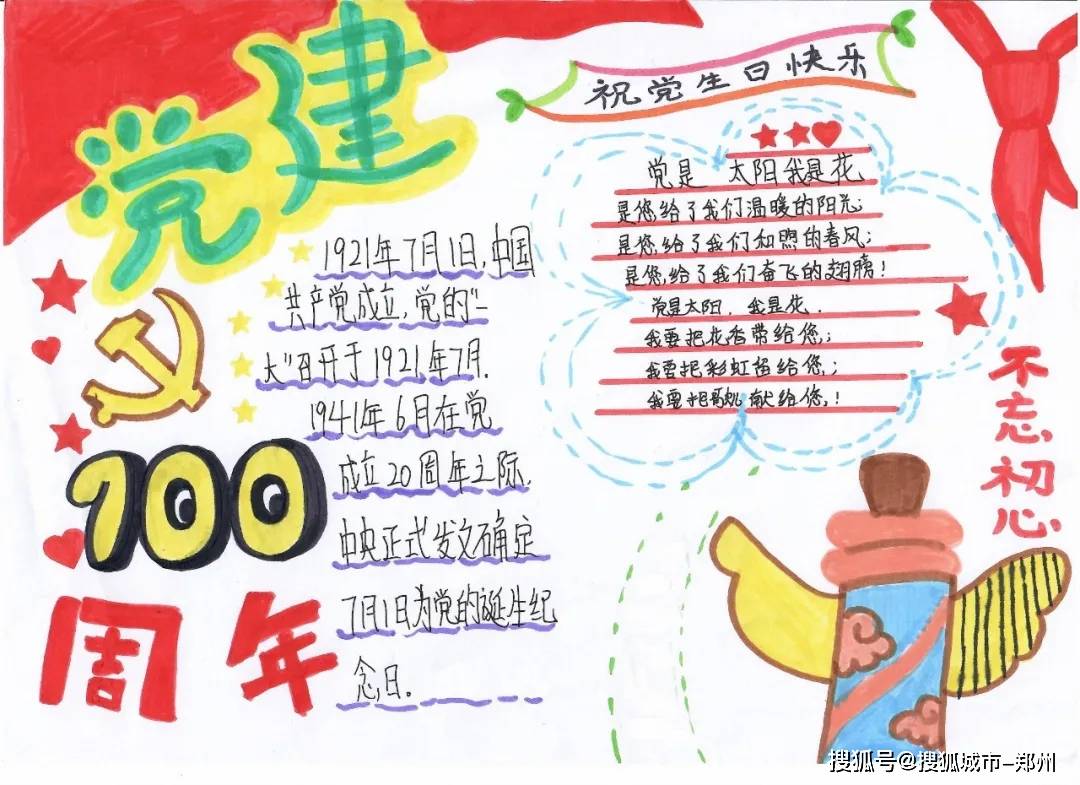 党建
1921年7月1日,中国
共产党成立,党的“一
大”召开于1921年7月.
1941年6月在党
成立20周年之际,
中央正式发文确定
7月1日为党的诞生纪
念日.
100
周年
祝党生日快乐
党是 太阳我是花
是您给了我们温暖的阳光;
是您给了我们和煦的春风;
是您给了我们奋飞的翅膀!
党是太阳,我是花.
我要把花香带给您,;
我要把彩虹留给您,;
我要把 献给您,!
不忘初心
搜狐号@搜狐城市-郑州